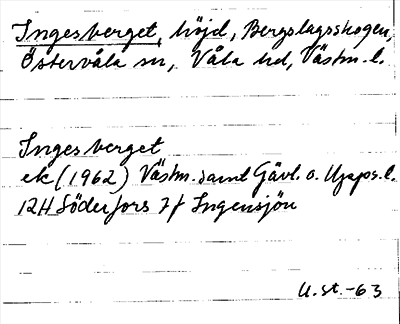 Ingesberget, höjd, Bergslagsskogen,
Östervåla sn, Våla hd, Västm. l.
Ingesberget
ek (1962) Västm. samt Gävl. o. Upps. l.
12H Söderfors 7f Ingensjön
U.st.-63